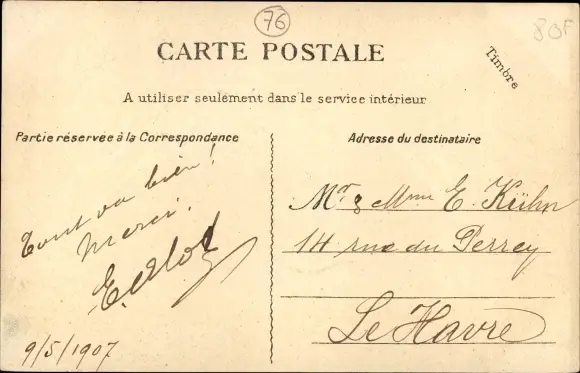 76
80F
CARTE POSTALE
Timbre
A utiliser seulement dans le service intérieur
Partie réservée à la Correspondance
Adresse du destinataire
Tout va bien!
Merci.
9/5/1907
Mr & Mme E. Kühn
14 rue du Perrey
Le Havre